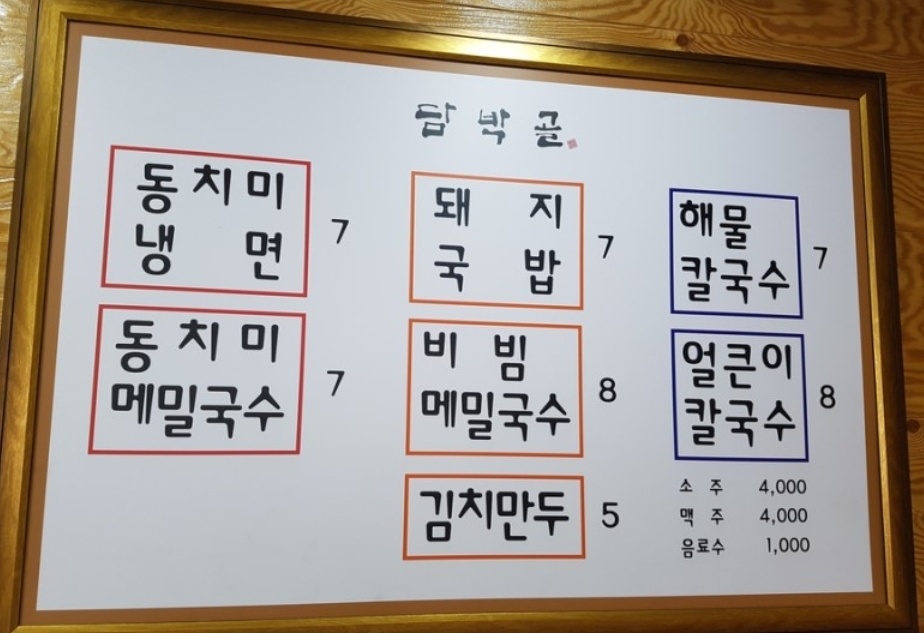 담박골
동치미
냉면
7
동치미
메밀국수
7
돼지
국밥
7
비빔
메밀국수
8
김치만두
5
해물
칼국수
7
얼큰이
칼국수
8
소주 4,000
맥주 4,000
음료수 1,000